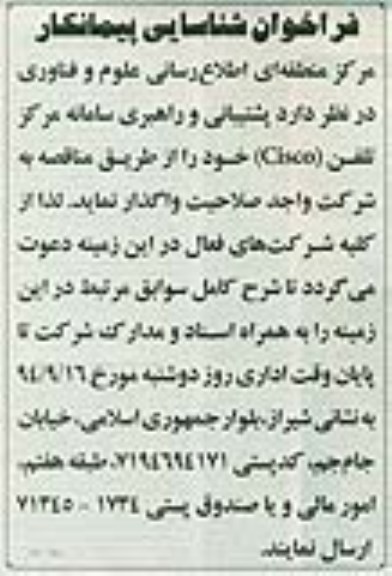 فراخوان شناسایی پیمانکار
مرکز منطقه‌ای اطلاع‌رسانی علوم و فناوری
در نظر دارد پشتیبانی و راهبری سامانه مرکز
تلفن (Cisco) خود را از طریق مناقصه به
شرکت واجد صلاحیت واگذار نماید. لذا از
کلیه شرکت‌های فعال در این زمینه دعوت
می‌گردد تا شرح کامل سوابق مرتبط در این
زمینه را به همراه اسناد و مدارک شرکت تا
پایان وقت اداری روز دوشنبه مورخ ۹۴/۹/۱۶
به نشانی شیراز، بلوار جمهوری اسلامی، خیابان
جام‌جم، کدپستی ۷۱۹٤٦۹٤۱۷۱، طبقه هفتم،
امور مالی و یا صندوق پستی ۱۷۳٤ - ۷۱۳٤۵
ارسال نمایند.